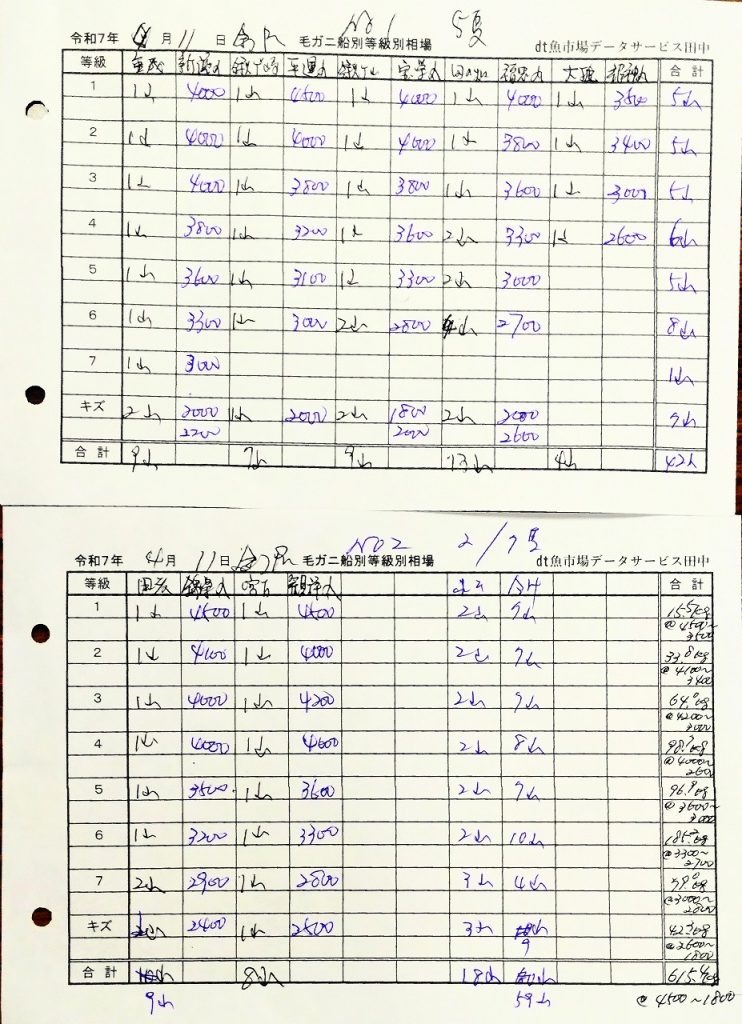 令和7年 4月 11日 毛ガニ船別等級別相場 No 1 5隻 dt魚市場データサービス田中
等級 合計
1 1山 4000 1山 4500 1山 4000 1山 4000 1山 3500 5山
2 1山 4000 1山 4000 1山 4000 1山 3800 1山 3400 5山
3 1山 4000 1山 3800 1山 3800 1山 3600 1山 3000 5山
4 1山 3800 1山 3200 1山 3600 2山 3300 1山 2600 6山
5 1山 3600 1山 3100 1山 3300 2山 3000 5山
6 1山 3300 1山 3000 2山 2800 4山 2700 8山
7 1山 3000 1山
キズ 2山 2000 1山 2000 2山 1800 2山 2000 7山
2200 2000 2600
合計 9山 7山 9山 13山 4山 42山
令和7年 4月 11日 毛ガニ船別等級別相場 No 2 2/7隻 dt魚市場データサービス田中
等級 合計
1 1山 4500 1山 4500 2山 7山 15.5kg
@4500~
3500
2 1山 4100 1山 4000 2山 7山 33.8kg
@4100~
3400
3 1山 4000 1山 4200 2山 7山 64.0kg
@4200~
3000
4 1山 4000 1山 4000 2山 8山
@4000~
2600
5 1山 3500 1山 3600 2山 7山 96.9kg
@3600~
3000
6 1山 3200 1山 3300 2山 10山
@3300~
2700
7 2山 2900 1山 2800 3山 4山
@3000~
2800
キズ 2400 1山 2500 3山
9 @2600~
1800
合計 8山 18山 615.4kg
9山 59山 @4500~1800